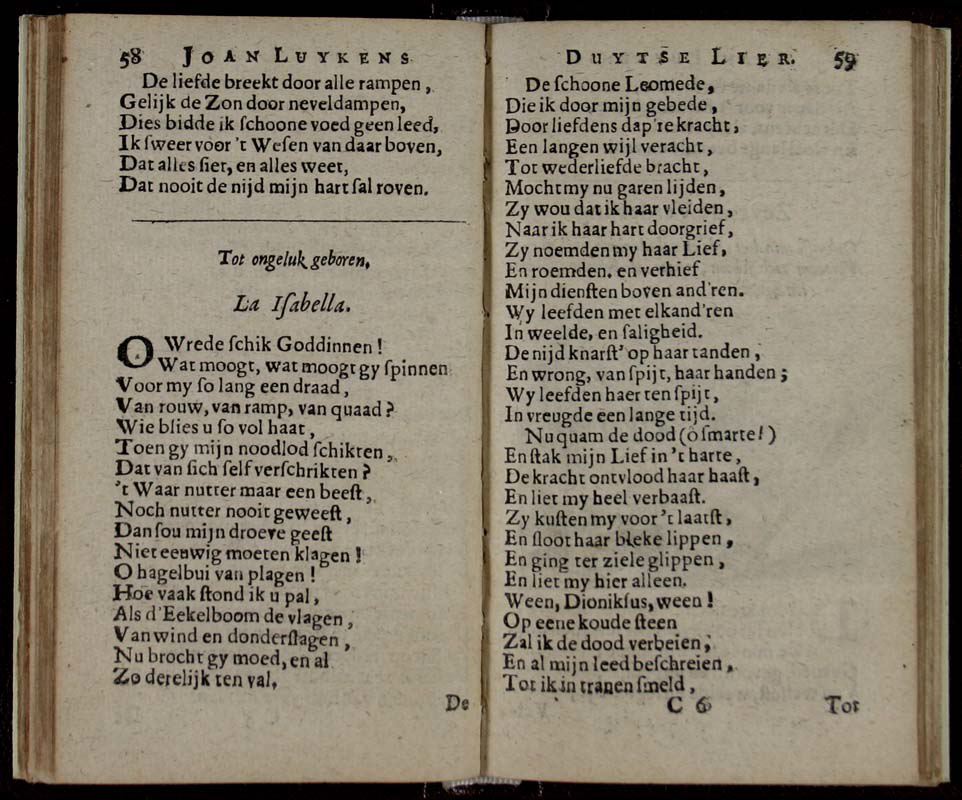 58 JOAN LUYKENS
De liefde breekt door alle rampen,
Gelijk de Zon door neveldampen,
Dies bidde ik ſchoone voed geen leed,
Ik ſweer voor 't Weſen van daar boven,
Dat alles ſiet, en alles weet,
Dat nooit de nijd mijn hart ſal roven.
Tot ongeluk geboren,
La Iſabella.
O Wrede ſchik Goddinnen!
Wat moogt, wat moogt gy ſpinnen
Voor my ſo lang een draad,
Van rouw, van ramp, van quaad?
Wie blies u ſo vol haat,
Toen gy mijn noodlod ſchikten,
Dat van ſich ſelf verſchrikten?
't Waar nutter maar een beeſt,
Noch nutter nooit geweeſt,
Dan ſou mijn droeve geeſt
Niet eeuwig moeten klagen!
O hagelbui van plagen!
Hoe vaak ſtond ik u pal,
Als d'Eekelboom de vlagen,
Van wind en donderſlagen,
Nu brocht gy moed, en al
Zo derelijk ten val,
De
DUYTSE LIER. 59
De ſchoone Leomede,
Die ik door mijn gebede,
Door liefdens dap're kracht,
Een langen wijl veracht,
Tot wederliefde bracht,
Mocht my nu garen lijden,
Zy wou dat ik haar vleiden,
Naar ik haar hart doorgrief,
Zy noemden my haar Lief,
En roemden, en verhief
Mijn dienſten boven and'ren.
Wy leefden met elkand'ren
In weelde, en ſaligheid.
De nijd knarſt' op haar tanden,
En wrong, van ſpijt, haar handen;
Wy leefden haer ten ſpijt,
In vreugde een lange tijd.
Nu quam de dood (ô ſmarte!)
En ſtak mijn Lief in 't harte,
De kracht ontvlood haar haaſt,
En liet my heel verbaaſt.
Zy kuſten my voor 't laatſt,
En ſloot haar bleke lippen,
En ging ter ziele glippen,
En liet my hier alleen.
Ween, Dionikſus, ween!
Op eene koude ſteen
Zal ik de dood verbeien,
En al mijn leed beſchreien,
Tot ik in tranen ſmeld,
C 6 Tot